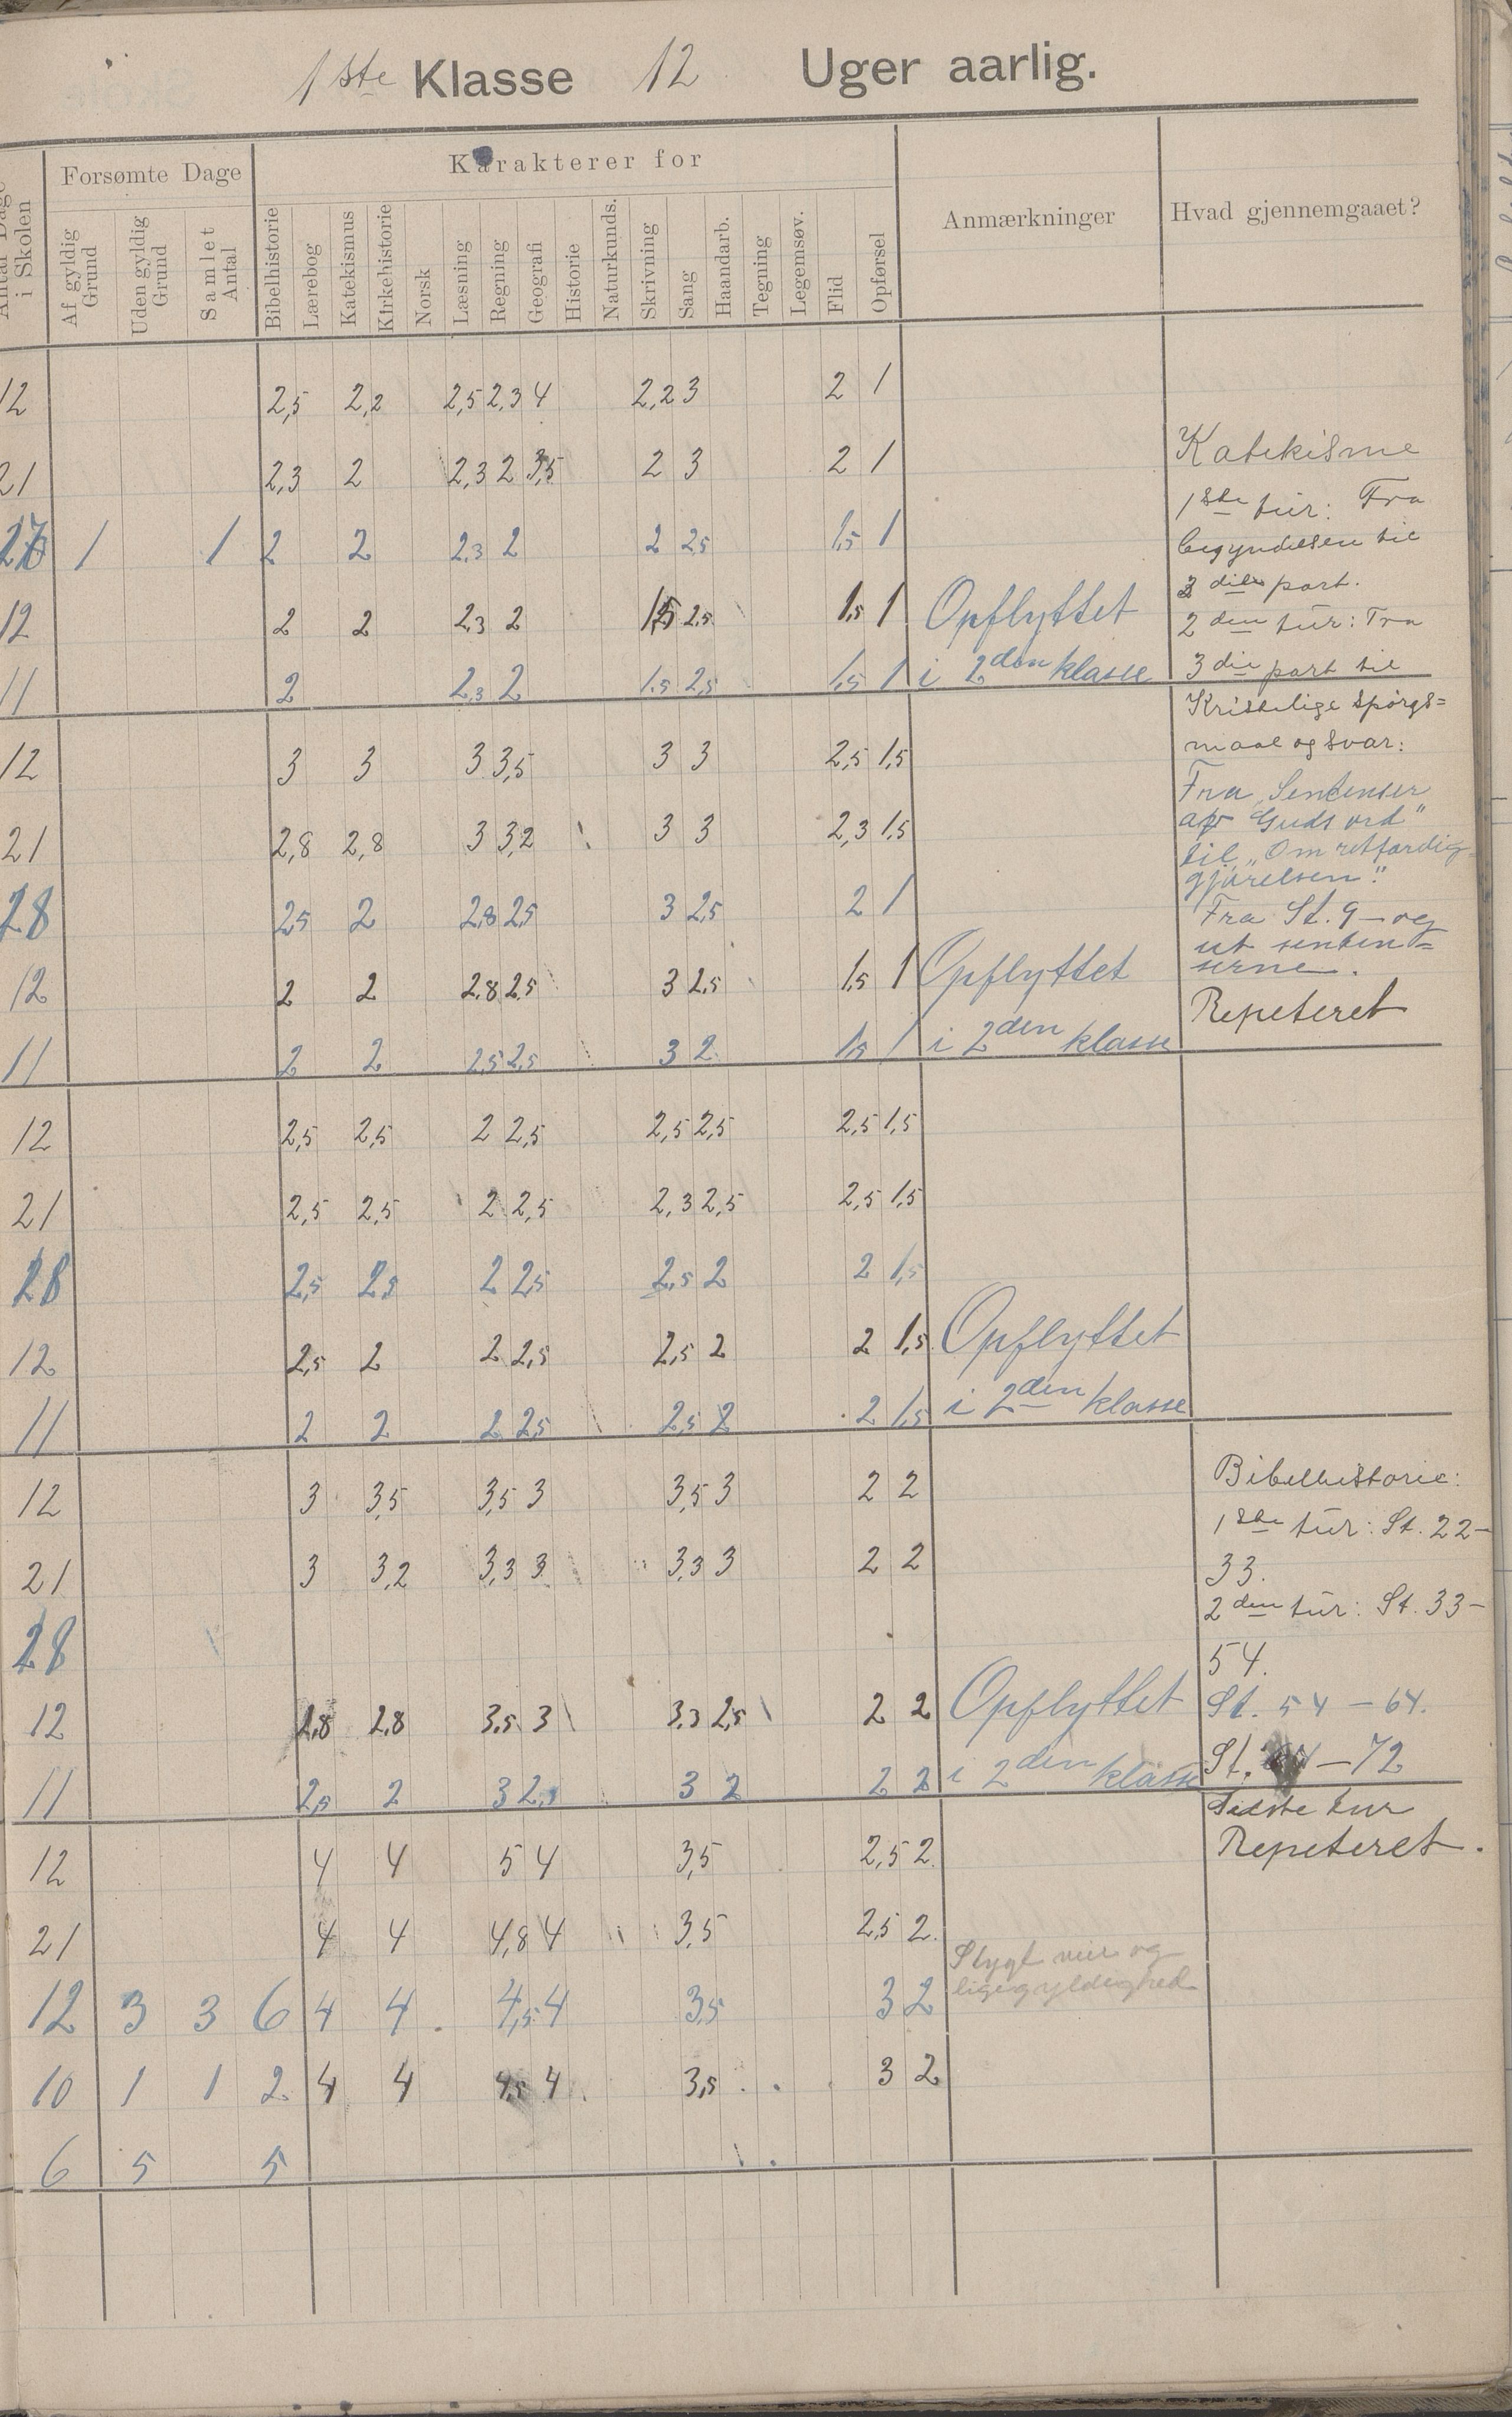 1ste Klasse 12 Uger aarlig.
Antal Dage i Skolen
Forsømte Dage
Karakterer for
Anmærkninger
Hvad gjennemgaaet?
Af gyldig Grund
Uden gyldig Grund
Samlet Antal
Bibelhistorie
Lærebog
Katekismus
Kirkehistorie
Norsk
Læsning
Regning
Geografi
Historie
Naturkunds.
Skrivning
Sang
Haandarb.
Tegning
Legemsøv.
Flid
Opførsel
12 2,5 2,2 2,5 2,3 4 2,2 3 2 1
21 2,3 2 2,3 2 3,5 2 3 2 1
1 1 2 2 2,3 2 2 2,5 1,5 1
12 2 2 2,3 2 1,5 2,5 1,5 1 Opflyttet
11 2 2,3 2 1,5 2,5 1,5 1 i 2den klasse
12 3 3 3 3,5 3 3 2,5 1,5
21 2,8 2,8 3 3,2 3 3 2,3 1,5
28 2,5 2 2,8 2,5 3 2,5 2 1
12 2 2 2,8 2,5 3 2,5 1,5 1 Opflyttet
11 2 2 2,5 2,5 3 2 1,5 1 i 2den klasse
12 2,5 2,5 2 2,5 2,5 2,5 2,5 1,5
21 2,5 2,5 2 2,5 2,3 2,5 2,5 1,5
28 2,5 2,5 2 2,5 2,5 2 2 1,5
12 2,5 2 2 2,5 2,5 2 2 1,5 Opflyttet
11 2 2 2 2,5 2,5 2 2 1,5 i 2den klasse
12 3 3,5 3,5 3 3,5 3 2 2
21 3 3,2 3,3 3 3,3 3 2 2
28
12 2,8 2,8 3,5 3 3,3 2,5 2 2 Opflyttet
11 2,5 2 3 2,5 3 2 2 2 i 2den klasse
12 4 4 5 4 3,5 2,5 2
21 4 4 4,8 4 3,5 2,5 2
12 3 3 6 4 4 4,5 4 3,5 3 2 Stygt veir og ligegyldighed
10 1 1 2 4 4 4,5 4 3,5 3 2
6 5 5
Katekisme
1ste tur: Fra
begyndelsen til
part.
2den tur: Fra
3die part til
Kristelige spørgs=
maal og svar:
Fra "Sentenser
af Guds ord"
til "Om retfærdig-
gjørelsen".
Fra St. 9 – og
ut senten=
serne.
Repeteret
Bibelhistorie:
1ste tur: St. 22–
33.
2den tur: St. 33–
54.
St. 54 – 64.
St. – 72
Sidste tur
Repeteret.